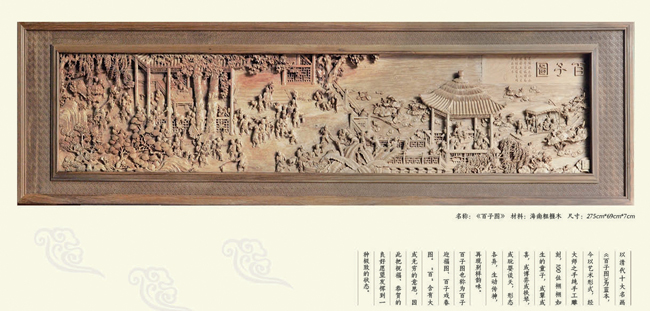 百子圖
名称：《百子图》 材料：海南粗榧木 尺寸：275cm*69cm*7cm
以清代十大名画
《百子图》为蓝本，
今以艺术形式，经
大师之手纯手工雕
刻，100位栩栩如
生的童子，或
喜，或博弈或抚琴，
或玩耍谈天，形态
各异，生动传神，
再现别样韵味。
百子图也称为百子
迎福图、百子戏春
图，“百”，含有大
或无穷的意思，因
此把祝福、恭贺的
良好愿望发挥到一
种极致的状态。